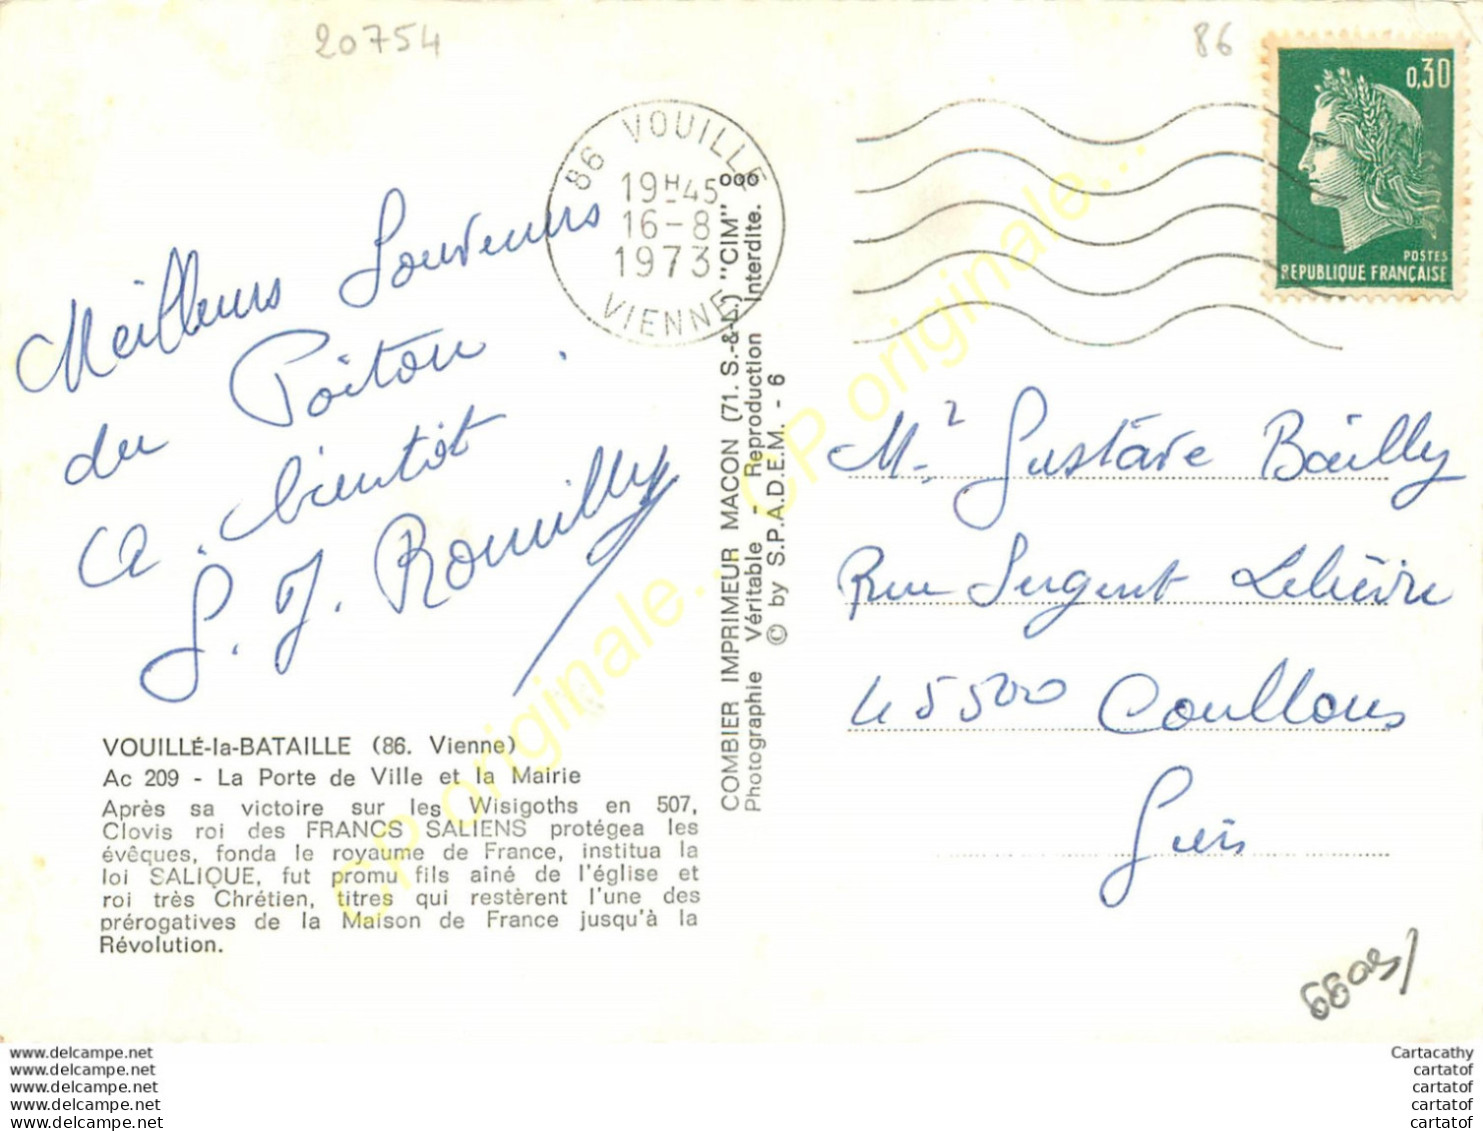 20754
86
0,30
POSTES
REPUBLIQUE FRANÇAISE
86 VOUILLE
19H45
16-8
1973
VIENNE
Meilleurs Souvenirs
du Poitou.
a bientôt
S. J. Romilly
VOUILLÉ-la-BATAILLE (86. Vienne)
Ac 209 - La Porte de Ville et la Mairie
Après sa victoire sur les Wisigoths en 507,
Clovis roi des FRANCS SALIENS protégea les
évêques, fonda le royaume de France, institua la
loi SALIQUE, fut promu fils ainé de l'église et
roi très Chrétien, titres qui restèrent l'une des
prérogatives de la Maison de France jusqu'à la
Révolution.
COMBIER IMPRIMEUR MACON (71. S.-&-L.) "CIM"
Photographie Véritable - Reproduction Interdite.
© by S.P.A.D.E.M. - 6
Mr Gustave Bailly
Rue Sergent Lelièvre
45500 Coullons
Gien
CP originale... CP originale... CP originale...
www.delcampe.net
www.delcampe.net
www.delcampe.net
www.delcampe.net
www.delcampe.net
Cartacathy
cartatof
cartatof
cartatof
cartatof